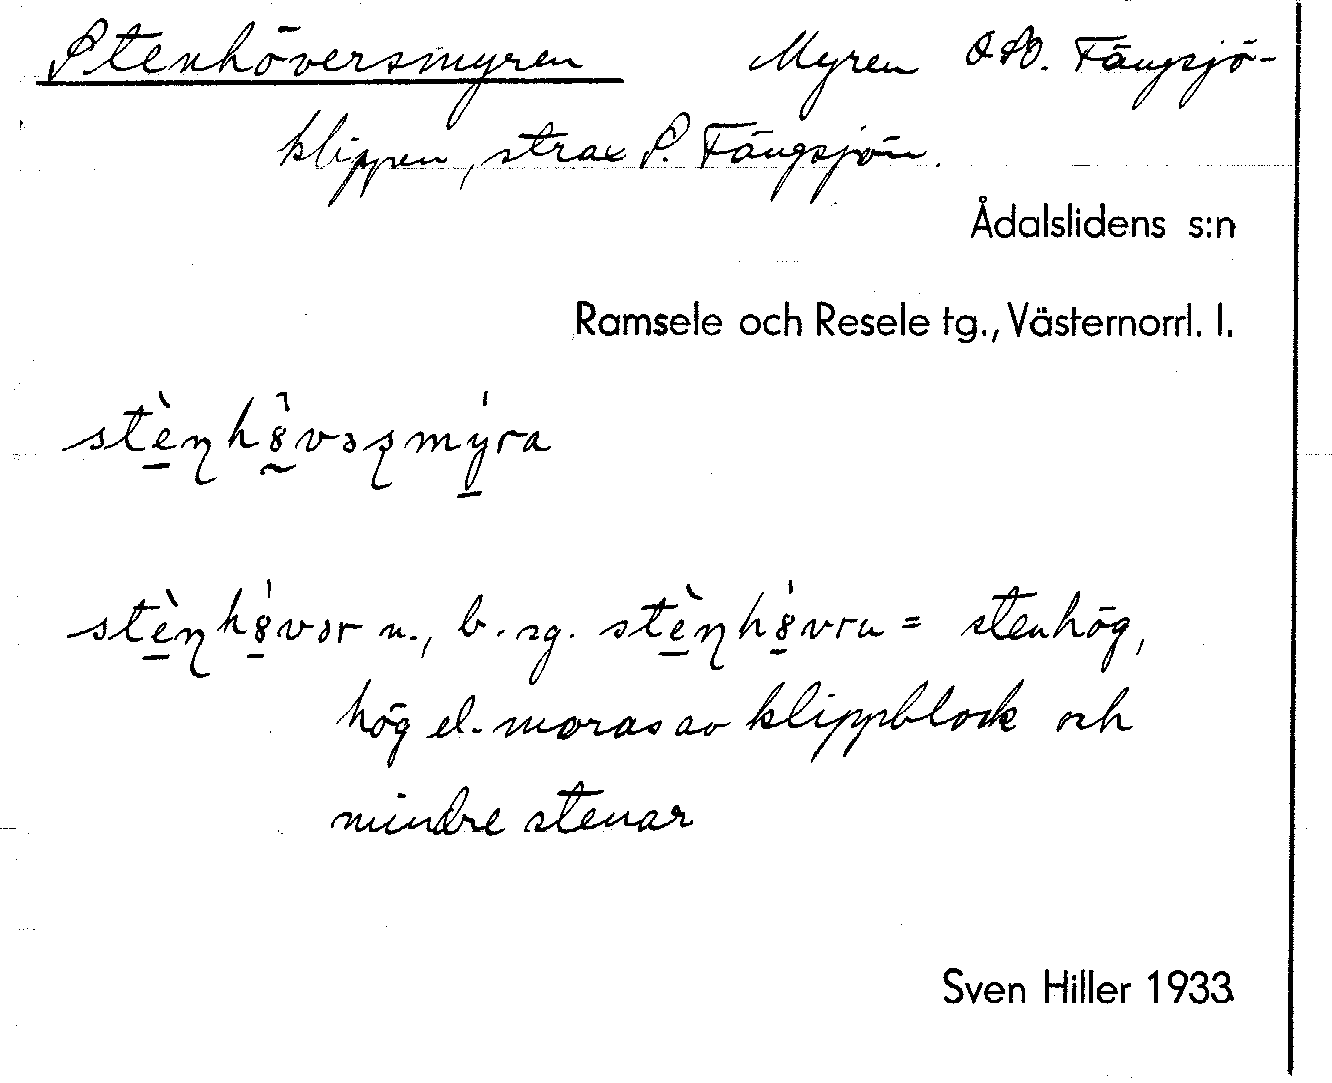 Stenhöversmyren Myren OSO. Fängsjö-
klippen, strax S. Fängsjön.
Ådalslidens s:n
Ramsele och Resele tg., Västernorrl. l.
stènhövəʂmýra
stènhövər n., b. sg. stènhövru = stenhög,
hög el. moras av klippblock och
mindre stenar
Sven Hiller 1933